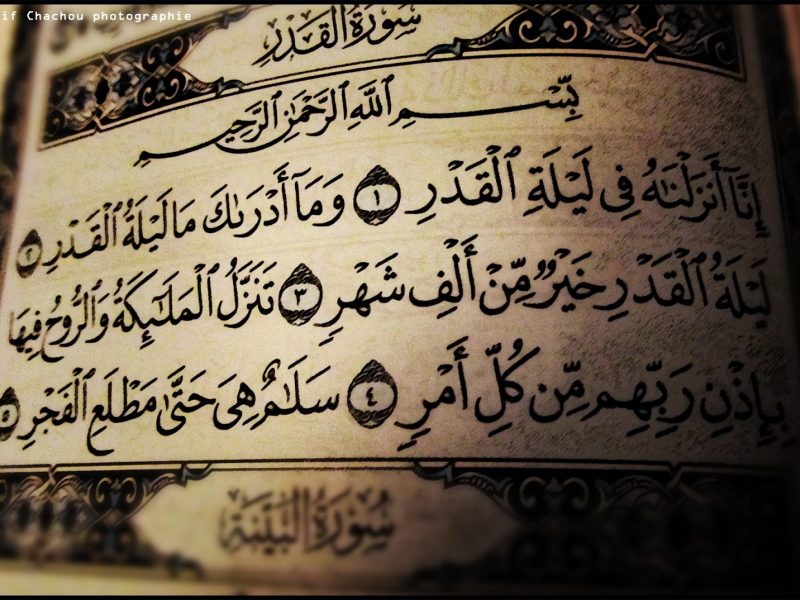 if Chachou photographie
سُورَةُ القَدْرِ
بِسْمِ اللَّهِ الرَّحْمَٰنِ الرَّحِيمِ
إِنَّا أَنزَلْنَاهُ فِي لَيْلَةِ الْقَدْرِ ١ وَمَا أَدْرَاكَ مَا لَيْلَةُ الْقَدْرِ ٢
لَيْلَةُ الْقَدْرِ خَيْرٌ مِّنْ أَلْفِ شَهْرٍ ٣ تَنَزَّلُ الْمَلَائِكَةُ وَالرُّوحُ فِيهَا
بِإِذْنِ رَبِّهِم مِّن كُلِّ أَمْرٍ ٤ سَلَامٌ هِيَ حَتَّىٰ مَطْلَعِ الْفَجْرِ ٥
سُورَةُ البَيِّنَةِ